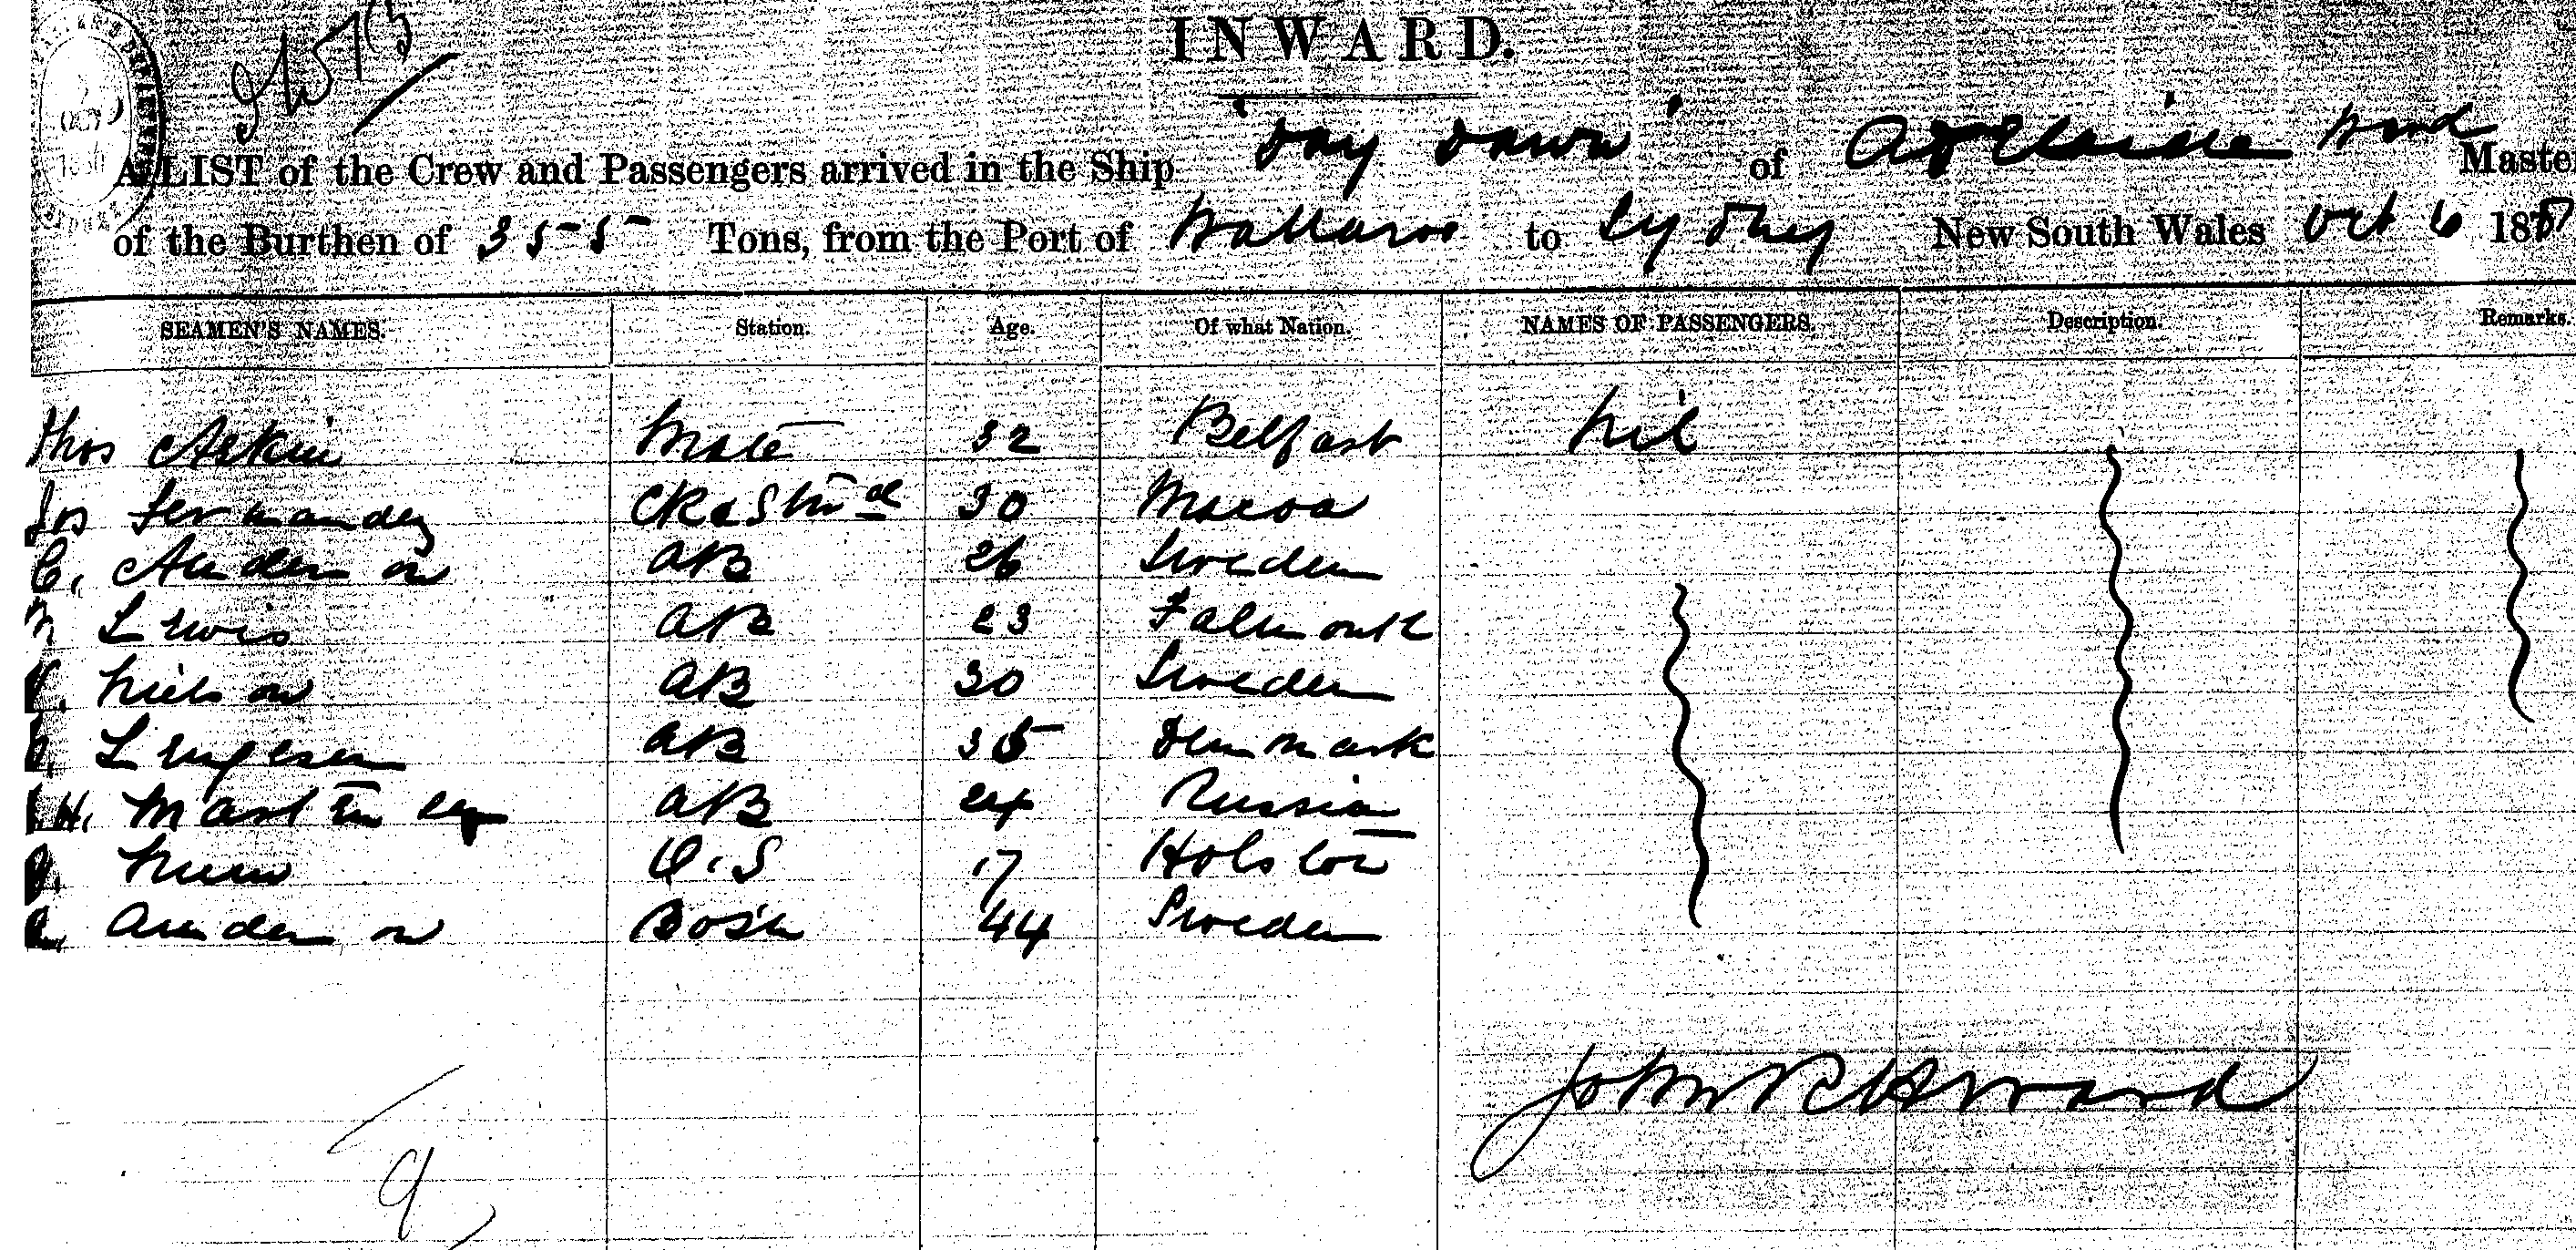 INWARD.
A LIST of the Crew and Passengers arrived in the Ship "Day Dawn" of Adelaide Master
of the Burthen of 355 Tons, from the Port of Wallaroo to Sydney New South Wales Oct 6 18
SEAMEN'S NAMES. Station. Age. Of what Nation. NAMES OF PASSENGERS. Description. Remarks.
Thos Askin Mate 32 Belfast Nil
Jos Fernandez Ck & Stwd 30 Macoa
C. Anderson AB 26 Sweden
Lewis AB 23 Falmouth
Nielson AB 30 Sweden
AB 35 Denmark
H. AB 24 Russia
O.S 17
Anderson Bosn 44 Sweden
John Ward
9